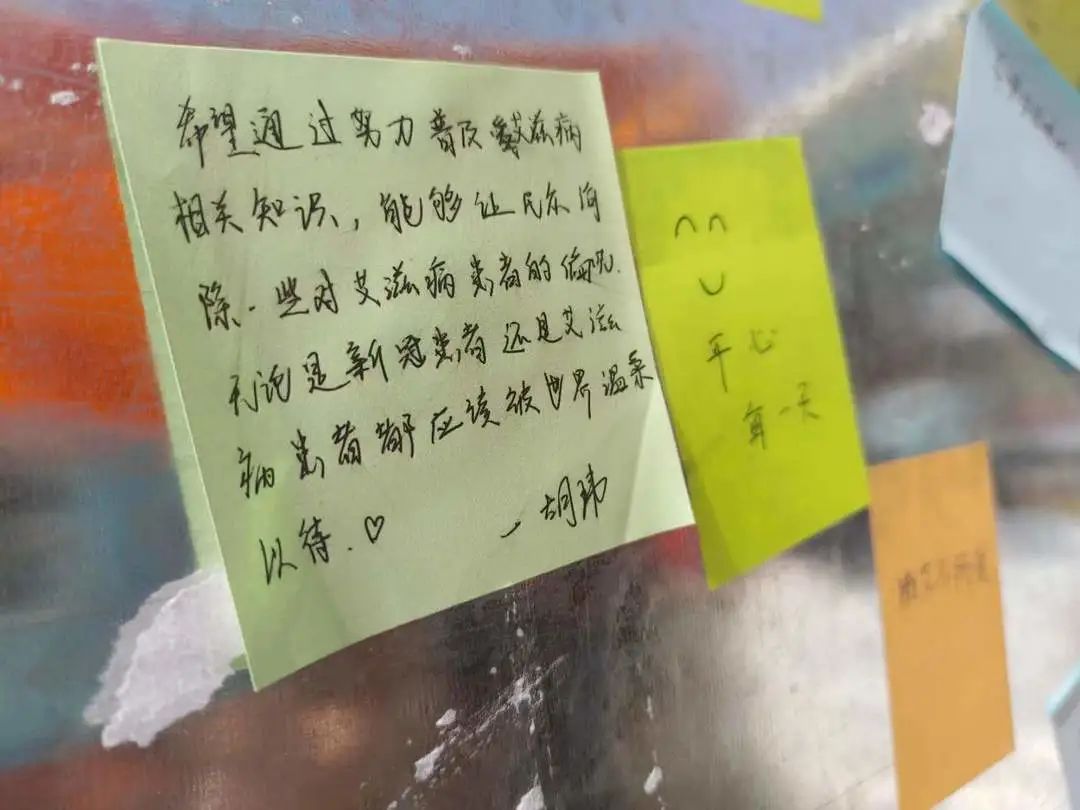 希望通过努力普及艾滋病
相关知识，能够让民众消
除一些对艾滋病患者的偏见.
无论是新冠患者还是艾滋
病患者都应该被世界温柔
以待.♡
-胡玮
开心
每一天